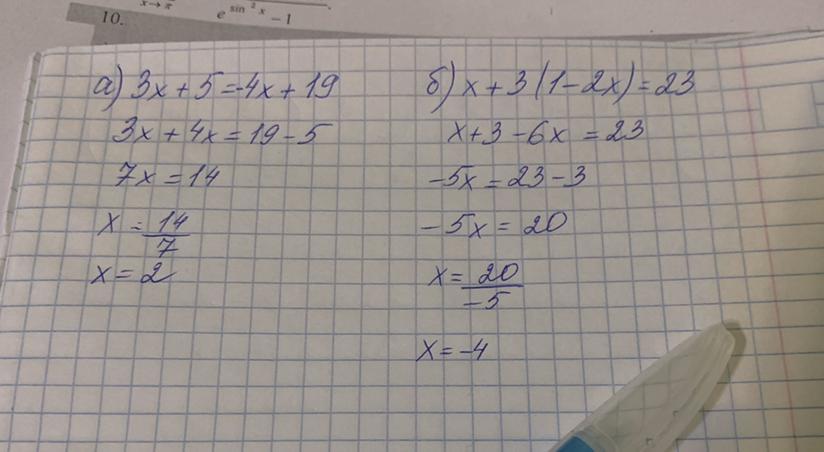 x→π
10. e^{sin² x} − 1
а) 3x + 5 = -4x + 19
3x + 4x = 19 - 5
7x = 14
x = 14/7
x = 2
б) x + 3 (1 - 2x) = 23
x + 3 - 6x = 23
-5x = 23 - 3
-5x = 20
x = 20/-5
x = -4